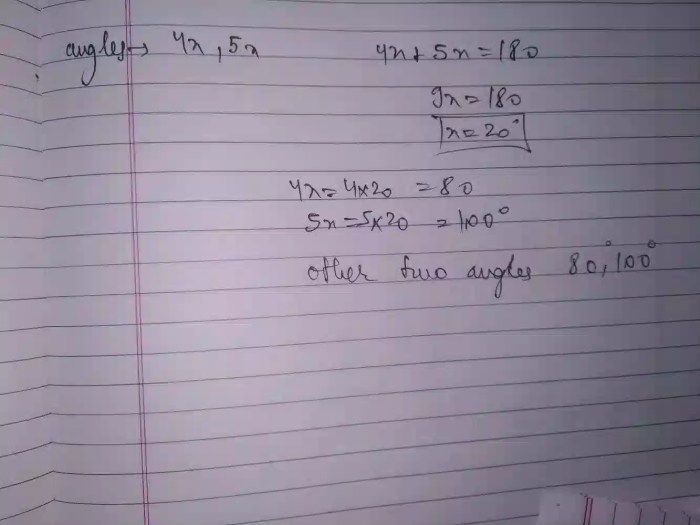 angles → 4x, 5x
4x + 5x = 180
9x = 180
x = 20°
4x = 4×20 = 80
5x = 5×20 = 100°
other two angles 80°, 100°